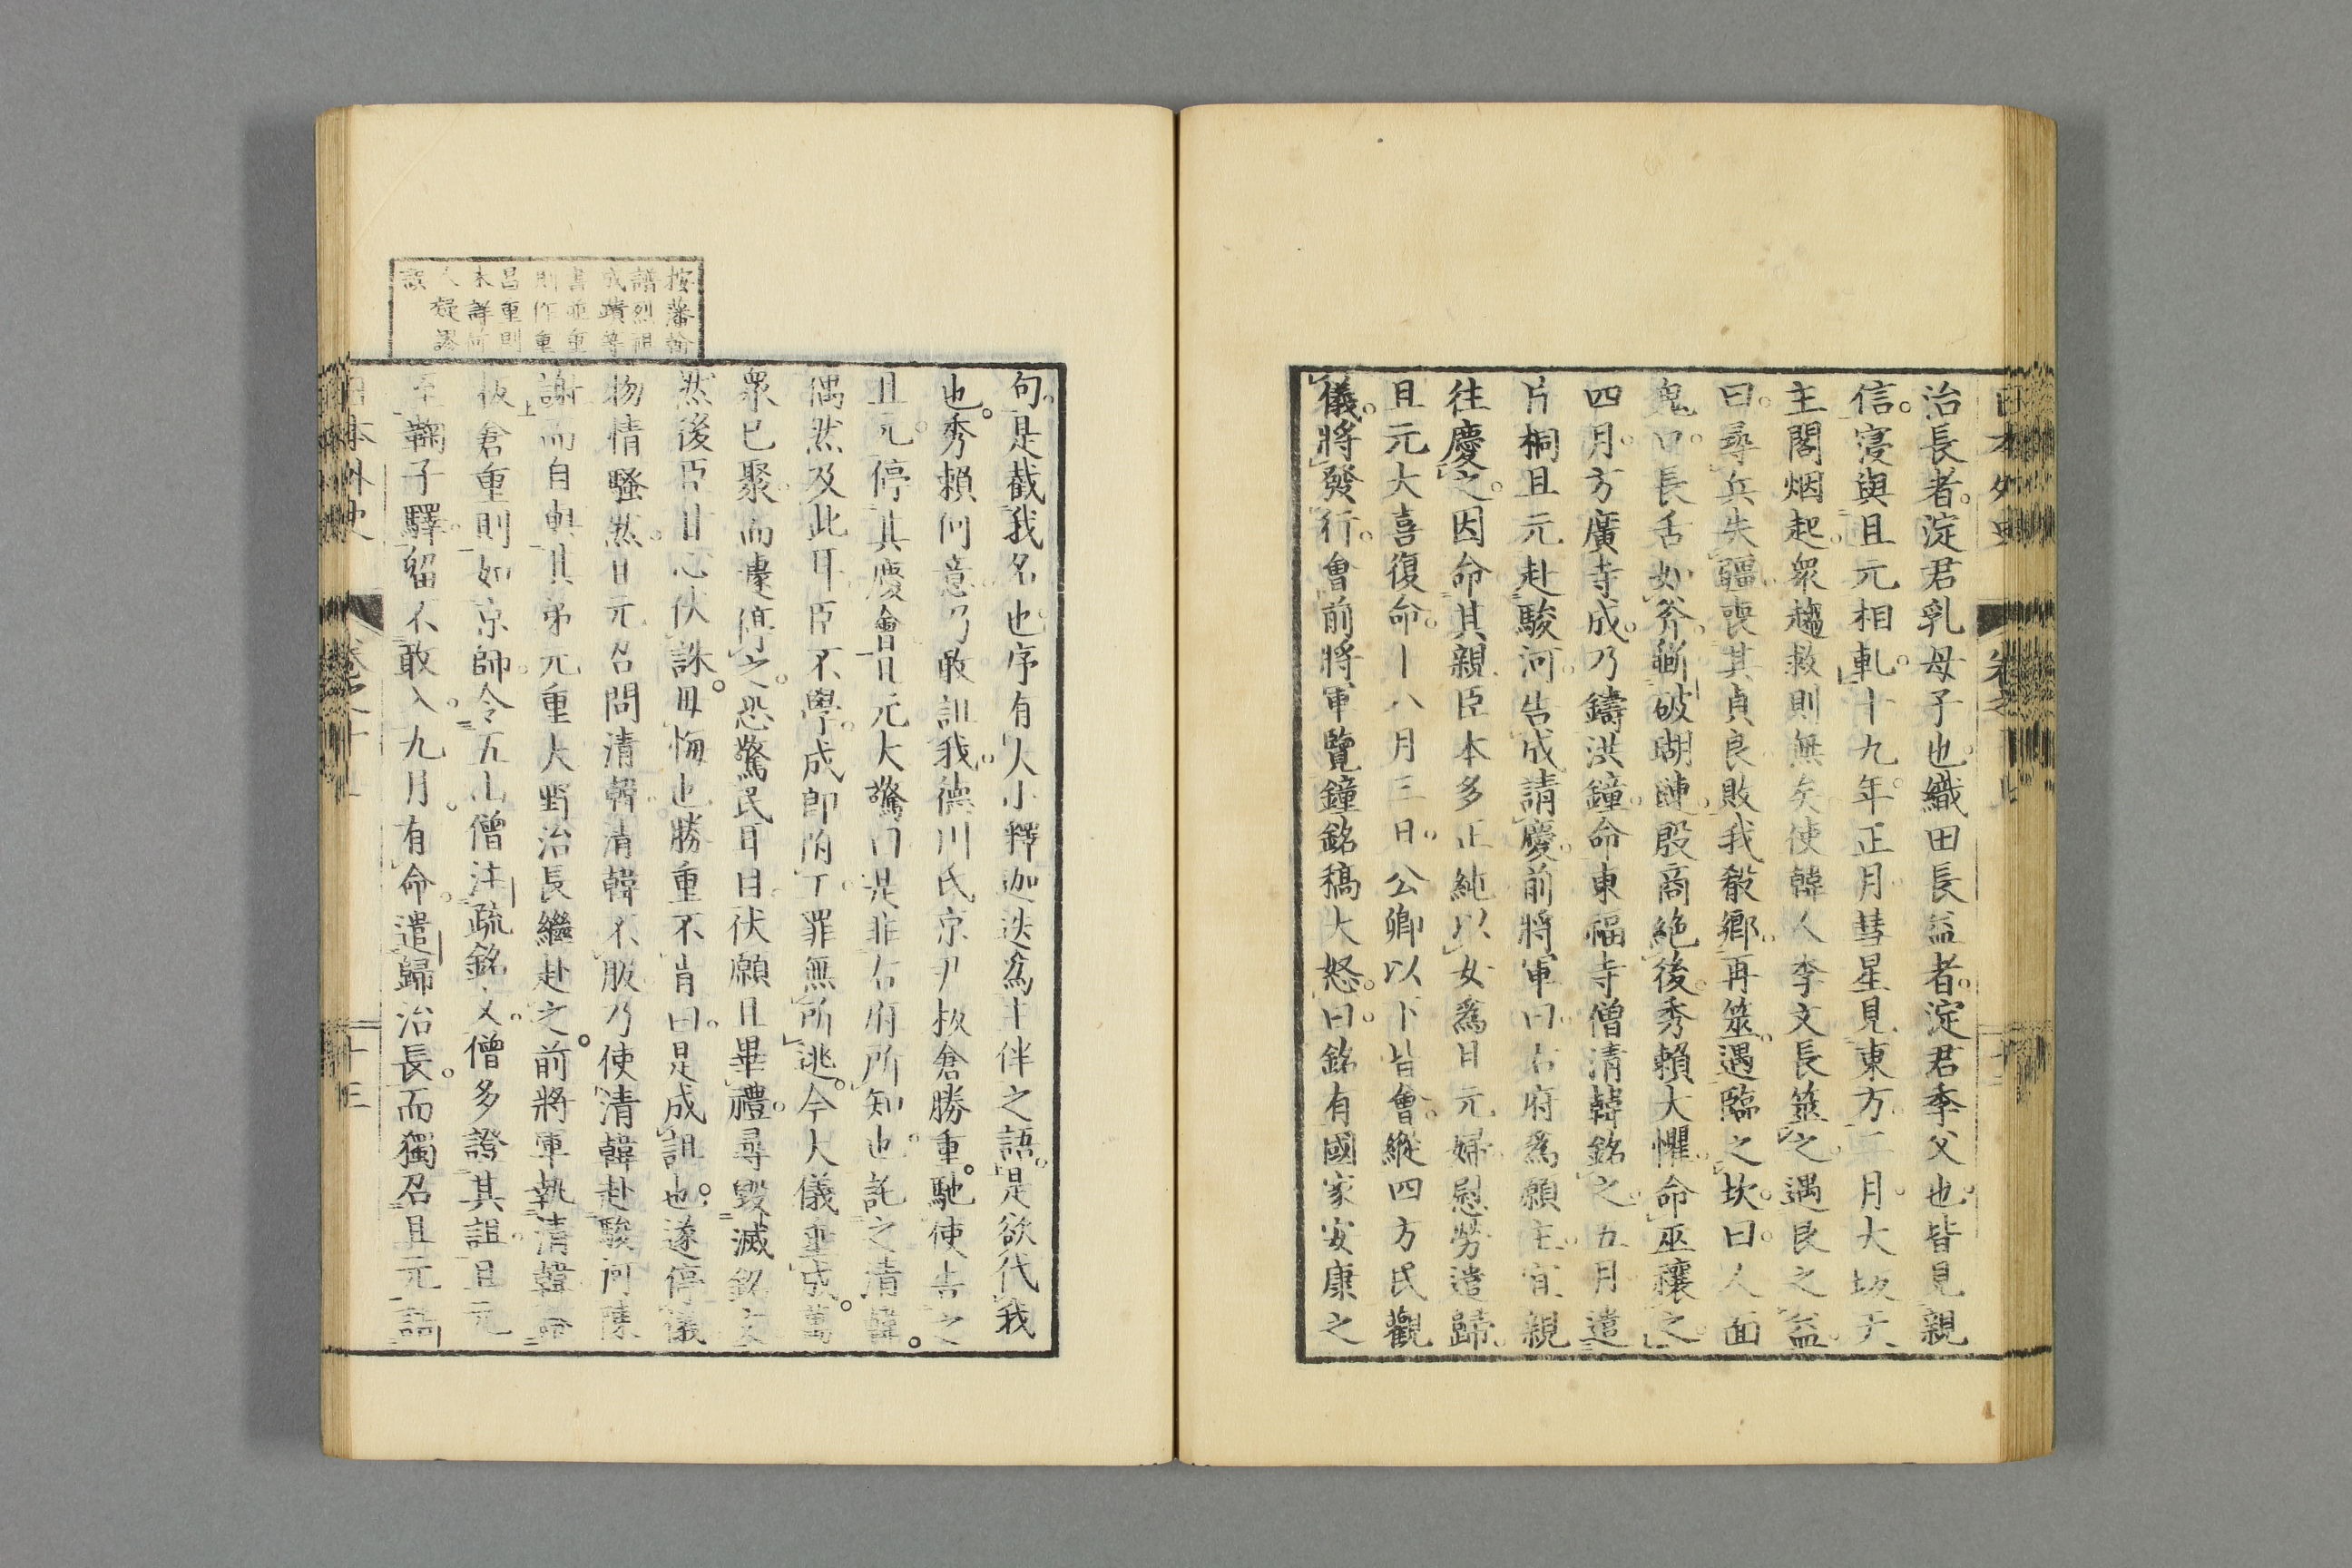 日本外史 卷之
治長者淀君乳母子也織田長益者淀君季父也皆見親
信寖與且元相軋十九年正月彗星見東方二月大坂天
主閣烟起衆趨救則無矣使韓人李文長筮之遇艮之益
曰尋兵失疆喪其貞良敗我殽鄉再筮遇臨之坎曰人面
鬼口長舌如斧斵破瑚璉殷商絶後秀賴大懼命巫禳之
四月方廣寺成乃鑄洪鐘命東福寺僧清韓銘之五月遣
片桐且元赴駿河告成請慶前將軍曰右府爲願主宜親
往慶之因命其親臣本多正純以女爲且元婦慰勞遣歸
且元大喜復命十八月三日公卿以下皆會縱四方氓觀
儀將發行會前將軍覽鐘銘稿大怒曰銘有國家安康之
句是截我名也序有大小釋迦迭爲主伴之語是欲代我
也秀賴何意乃敢詛我德川氏京尹板倉勝重馳使告之
且元停其慶會且元大驚曰是非右府所知也託之清韓
偶然及此耳臣不學成卽附丁罪無所逃今大儀垂成萬
衆已聚而遽停之恐驚民耳目伏願且畢禮尋毀滅銘文
然後臣甘心伏誅毋悔也勝重不肯曰是成詛也遂停儀
物情騷然且元召問清韓清韓不服乃使清韓赴駿河陳
謝而自與其弟元重大野治長繼赴之前將軍執清韓命
板倉重則如京師令五山僧注疏銘文僧多證其詛且元
至鞠子驛留不敢入九月有命遣歸治長而獨召且元詰
按藩翰
譜烈祖
成蹟等
書並重
則作重
昌重則
未詳何
人疑謬
誤
日本外史 卷之十 十三